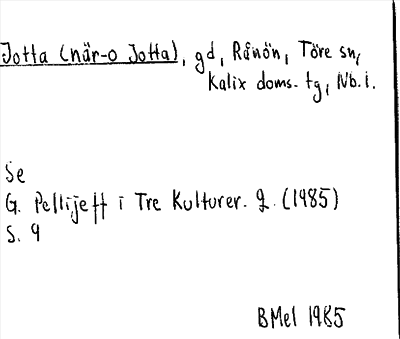 Jotta (när-o Jotta), gd, Rånön, Töre sn,
Kalix doms. tg, Nb. l.
Se
G. Pellijeff i Tre Kulturer. 2. (1985)
S. 9
BMel 1985